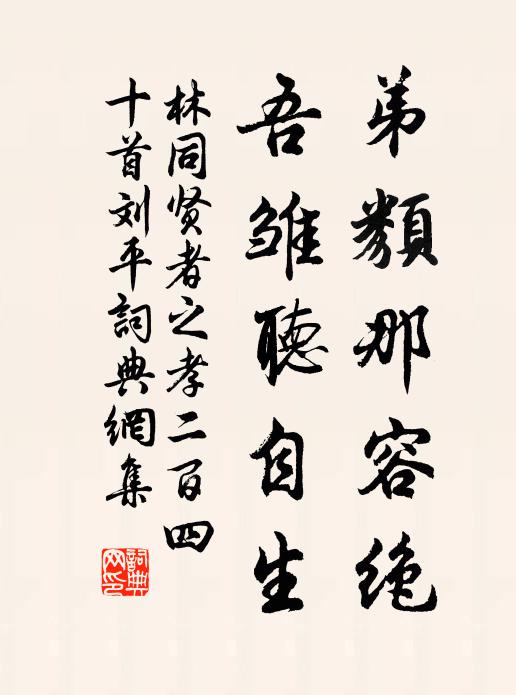 弟類那容絶
吾雏聽自生
林同贤者之孝二百四
十首刘平詞典網集
詞典网印